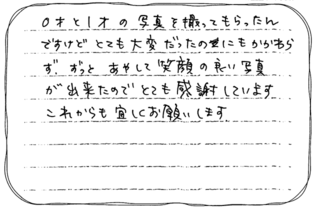 0才と1才の写真を撮ってもらったん
ですけど とても大変だったのにもかかわら
ず、ずっと あやして 笑顔の良い写真
が出来たので とても感謝しています。
これからも宜しくお願いします。